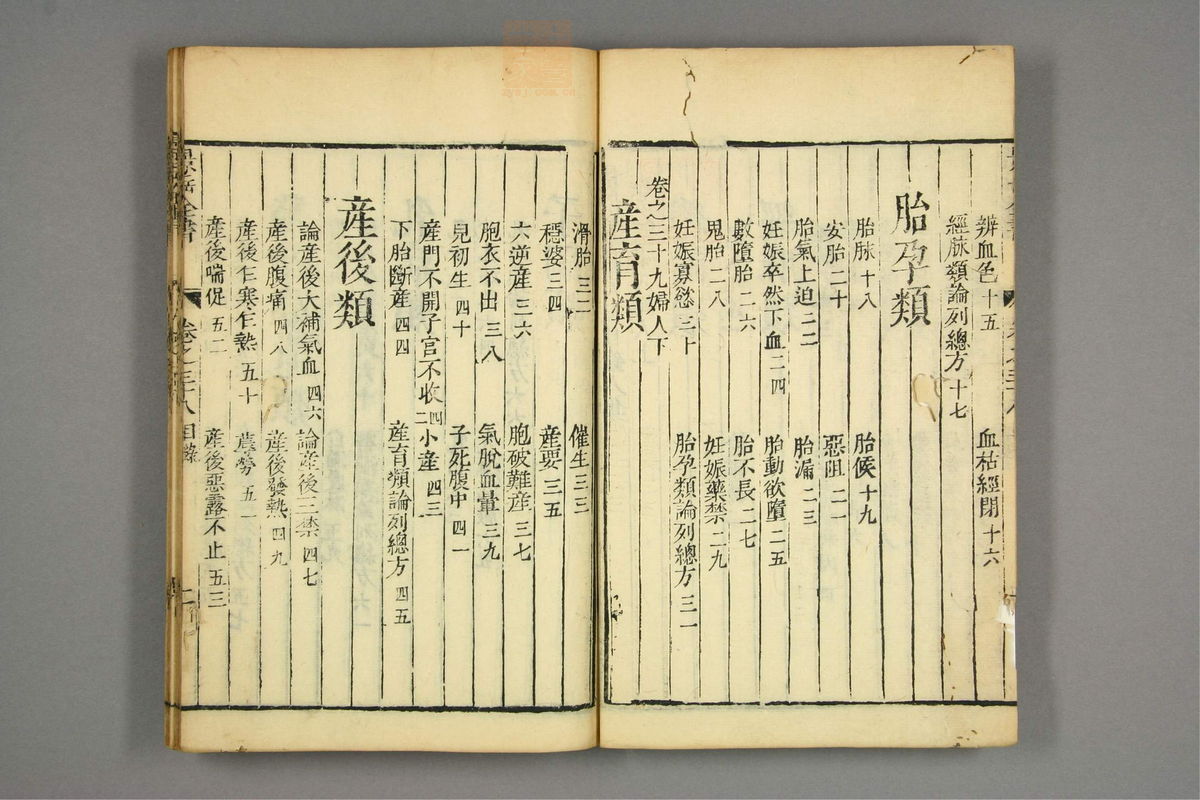 辨血色 十五　血枯經閉 十六
經脉類論列總方 十七
胎孕類
胎脉 十八　胎候 十九
安胎 二十　惡阻 二一
胎氣上迫 二二　胎漏 二三
妊娠卒然下血 二四　胎動欲墮 二五
數墮胎 二六　胎不長 二七
鬼胎 二八　妊娠藥禁 二九
妊娠寡慾 三十　胎孕類論列總方 三一
卷之三十九婦人下
産育類
滑胎 三二　催生 三三
穩婆 三四　産要 三五
六逆産 三六　胞破難産 三七
胞衣不出 三八　氣脫血暈 三九
兒初生 四十　子死腹中 四一
産門不開子宮不收 四二　小産 四三
下胎斷産 四四　産育類論列總方 四五
産後類
論産後大補氣血 四六　論産後三禁 四七
産後腹痛 四八　産後發熱 四九
産後乍寒乍熱 五十　蓐勞 五一
産後喘促 五二　産後惡露不止 五三
景岳全書　卷之三十八目錄
zysj.com.cn